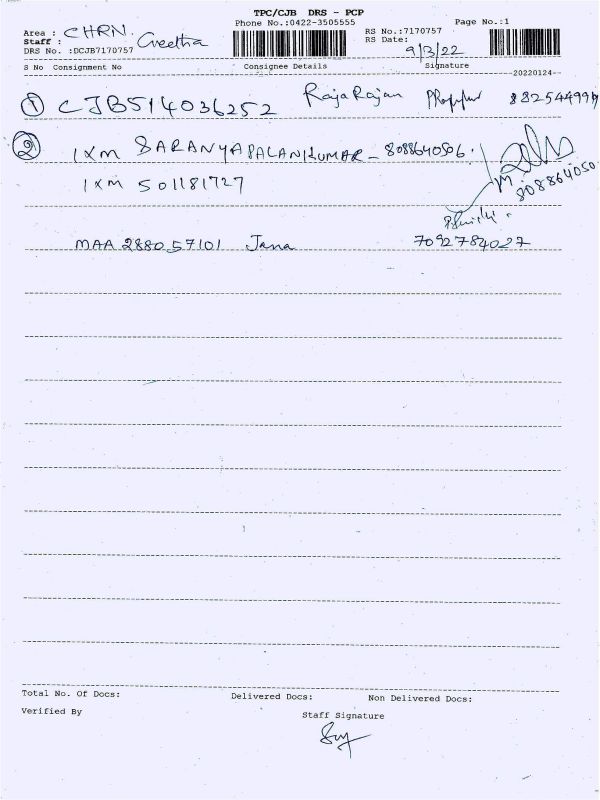 TPC/CJB DRS - PCP
Phone No.:0422-3505555
Page No.:1
Area : CHRN.
Staff : Geetha
DRS No. :DCJB7170757
RS No.:7170757
RS Date: 9/3/22
S No Consignment No Consignee Details Signature
20220124
① CJB514036252 RajaRajan
② IXM SARANYAPALANIKUMAR - 8088640506.
IXM 501181727
MAA 288057101 Jana 7092784027
Total No. Of Docs: Delivered Docs: Non Delivered Docs:
Verified By
Staff Signature